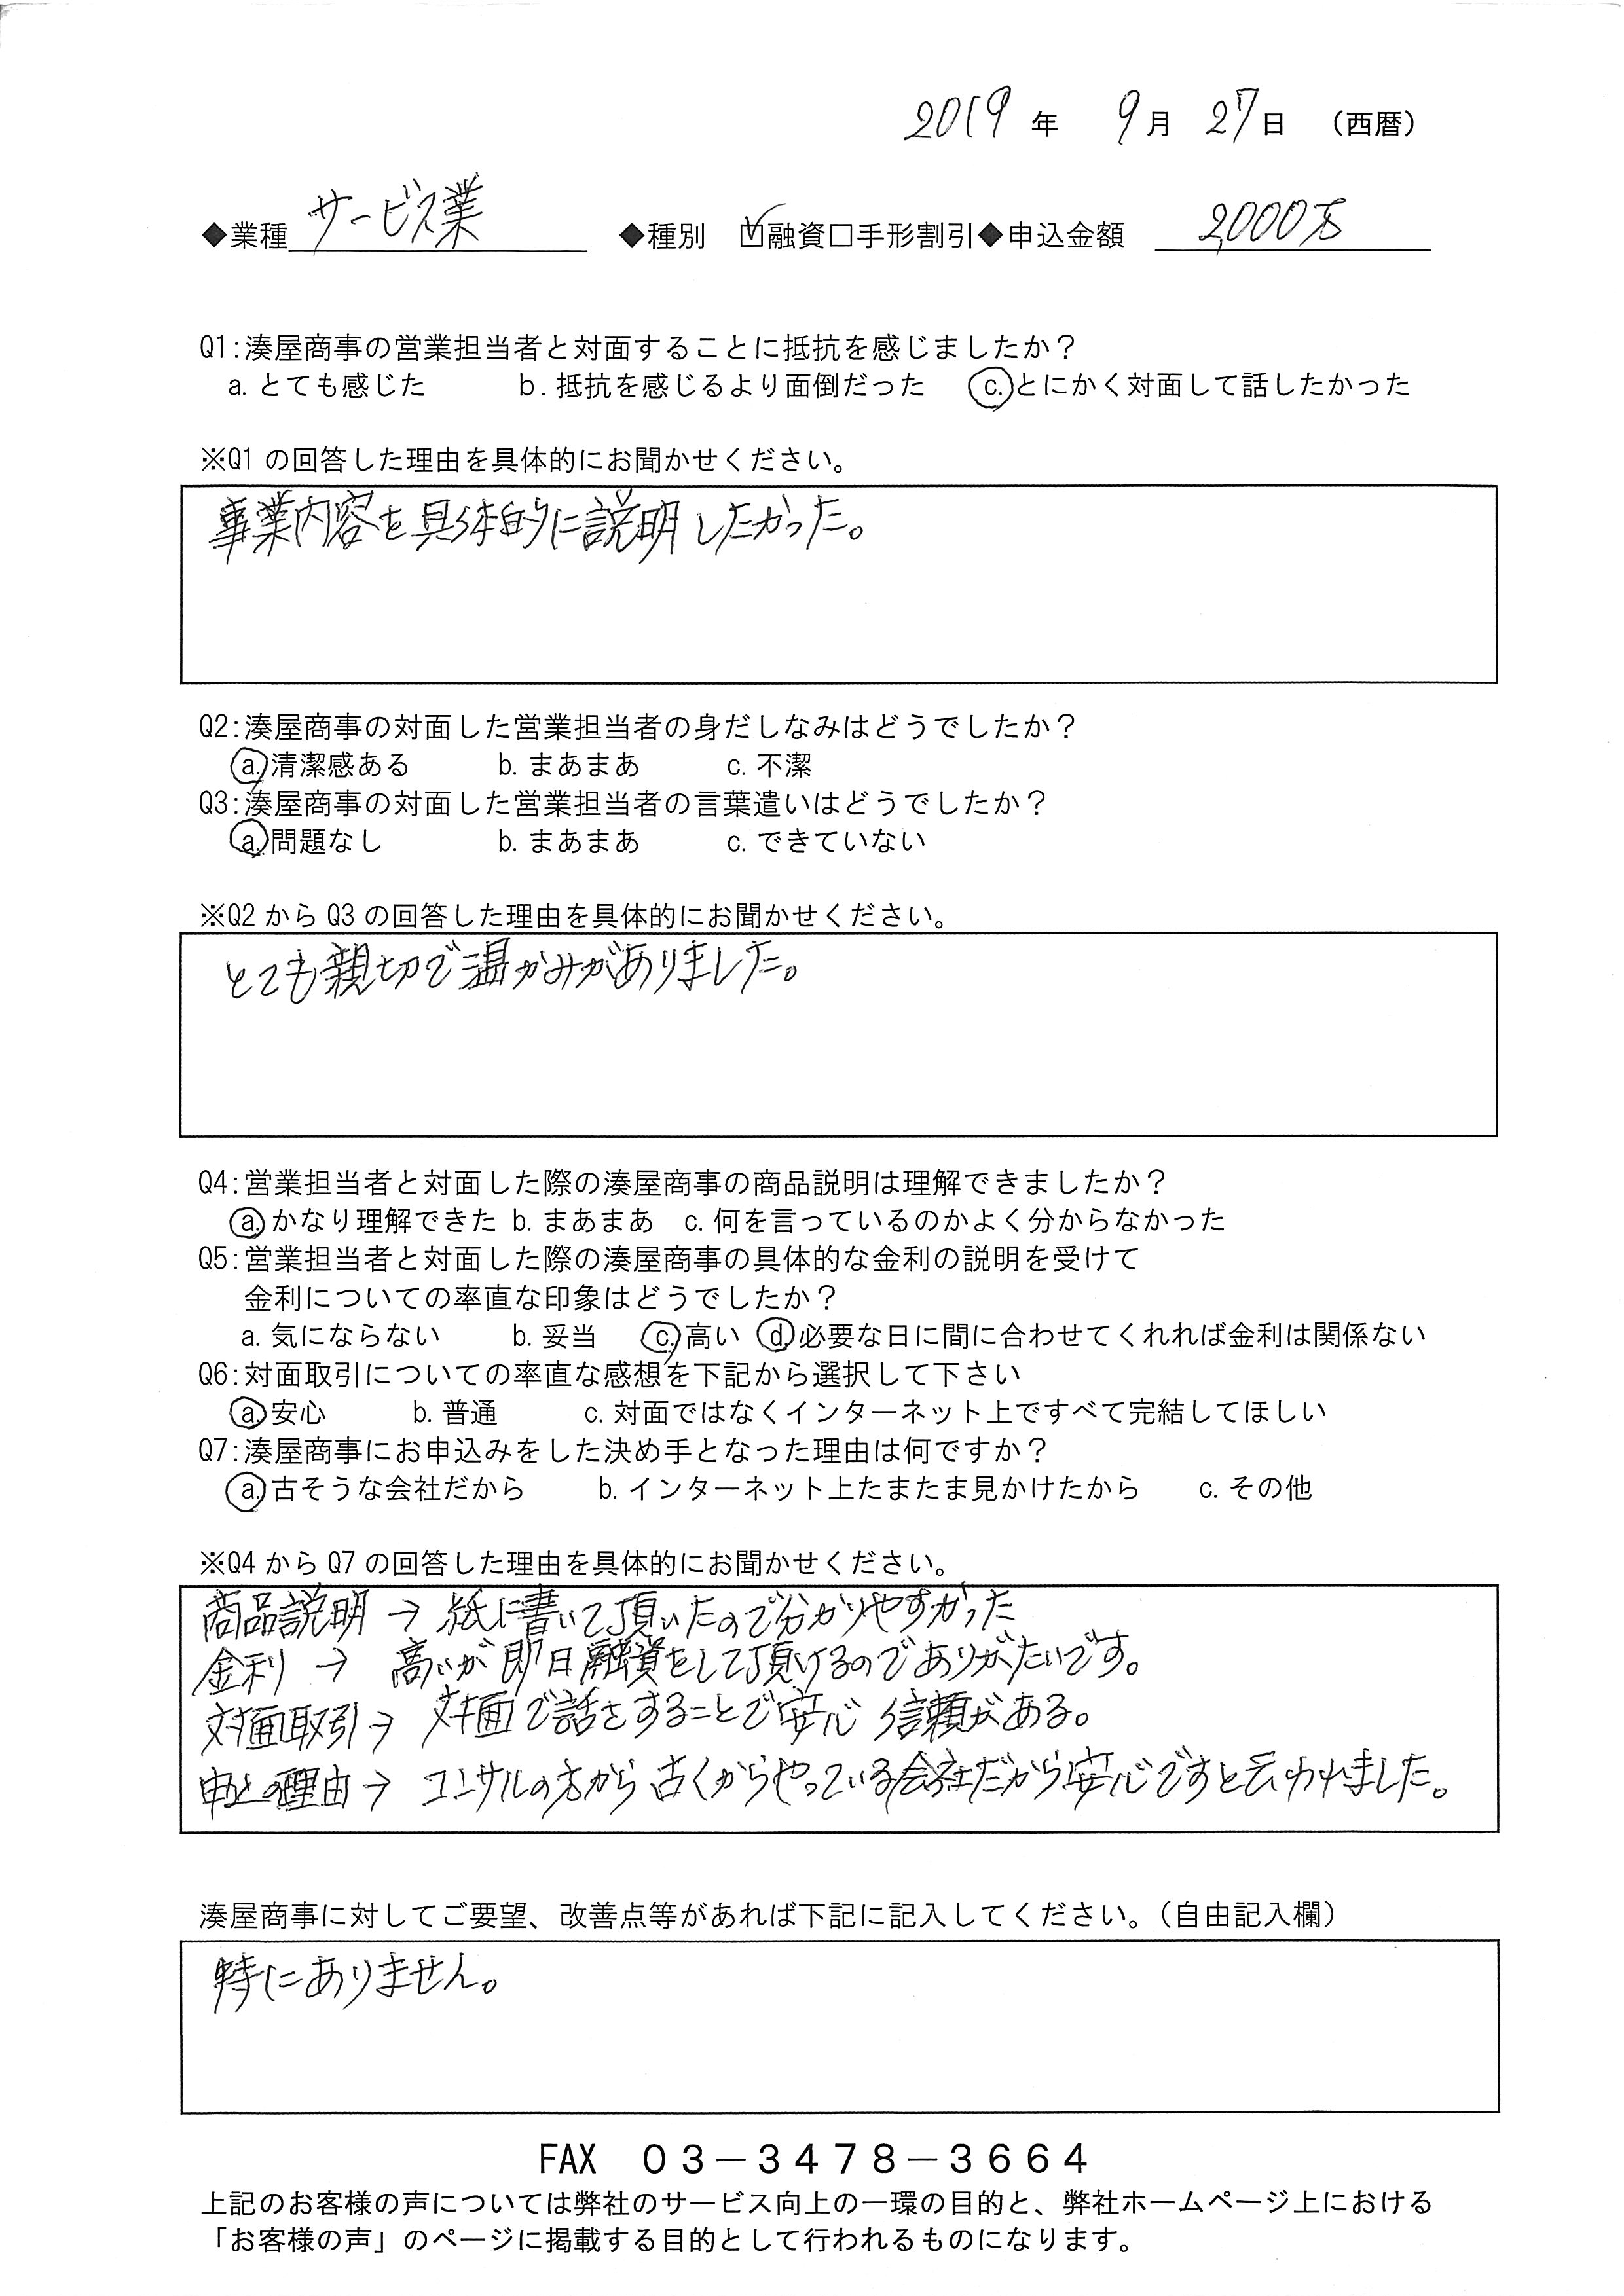 2019 年 9月 27日 （西暦）
◆業種 サービス業 ◆種別 ☑融資□手形割引◆申込金額 2,000万
Q1:湊屋商事の営業担当者と対面することに抵抗を感じましたか？
a. とても感じた b. 抵抗を感じるより面倒だった c. とにかく対面して話したかった
※Q1 の回答した理由を具体的にお聞かせください。
事業内容を具体的に説明したかった。
Q2:湊屋商事の対面した営業担当者の身だしなみはどうでしたか？
a. 清潔感ある b. まあまあ c. 不潔
Q3:湊屋商事の対面した営業担当者の言葉遣いはどうでしたか？
a. 問題なし b. まあまあ c. できていない
※Q2 から Q3 の回答した理由を具体的にお聞かせください。
とても親切で温かみがありました。
Q4:営業担当者と対面した際の湊屋商事の商品説明は理解できましたか？
a. かなり理解できた b. まあまあ c. 何を言っているのかよく分からなかった
Q5:営業担当者と対面した際の湊屋商事の具体的な金利の説明を受けて
金利についての率直な印象はどうでしたか？
a. 気にならない b. 妥当 c. 高い d. 必要な日に間に合わせてくれれば金利は関係ない
Q6:対面取引についての率直な感想を下記から選択して下さい
a. 安心 b. 普通 c. 対面ではなくインターネット上ですべて完結してほしい
Q7:湊屋商事にお申込みをした決め手となった理由は何ですか？
a. 古そうな会社だから b. インターネット上たまたま見かけたから c. その他
※Q4 から Q7 の回答した理由を具体的にお聞かせください。
商品説明 → 紙に書いて頂いたので分かりやすかった
金利 → 高いが即日融資をして頂けるのでありがたいです。
対面取引→ 対面で話をすることで安心 信頼がある。
申込の理由→ コンサルの方から古くからやっている会社だから安心ですと云われました。
湊屋商事に対してご要望、改善点等があれば下記に記入してください。（自由記入欄）
特にありません。
FAX ０３－３４７８－３６６４
上記のお客様の声については弊社のサービス向上の一環の目的と、弊社ホームページ上における
「お客様の声」のページに掲載する目的として行われるものになります。